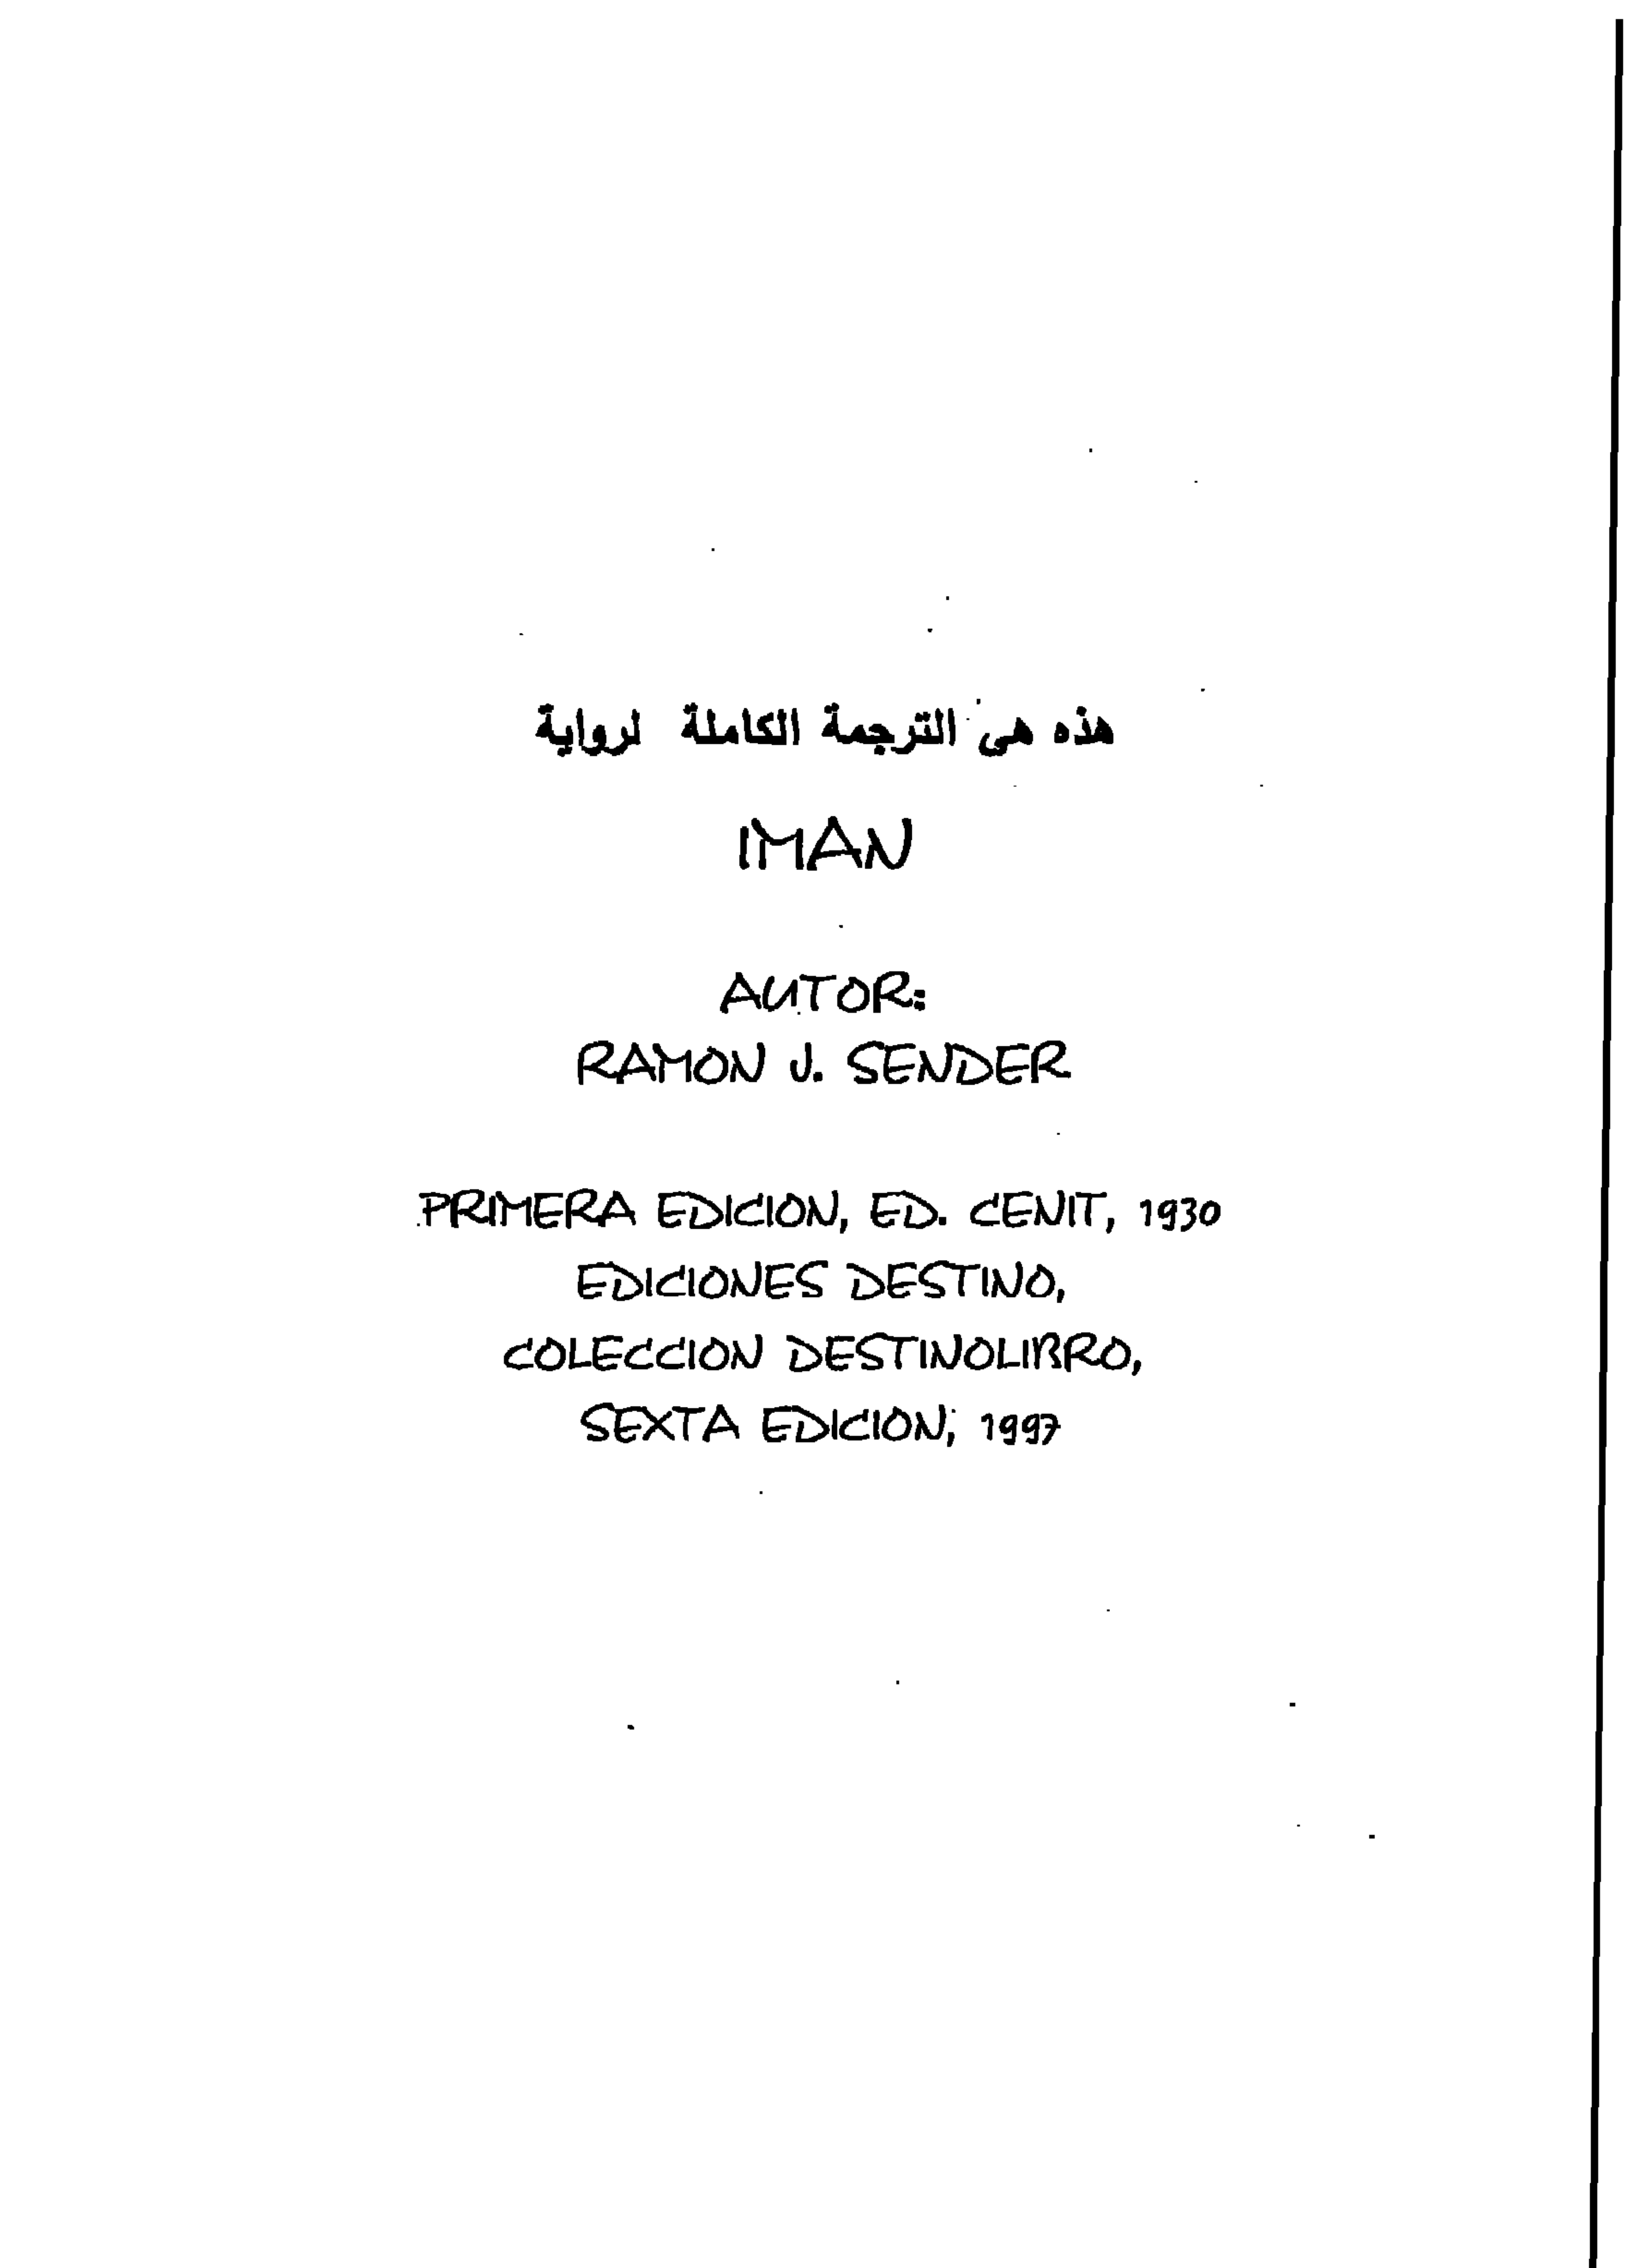 هذه هي الترجمة الكاملة لرواية
IMAN
AUTOR:
RAMON J. SENDER
PRIMERA EDICION, ED. CENIT, 1930
EDICIONES DESTINO,
COLECCION DESTINOLIBRO,
SEXTA EDICION, 1997